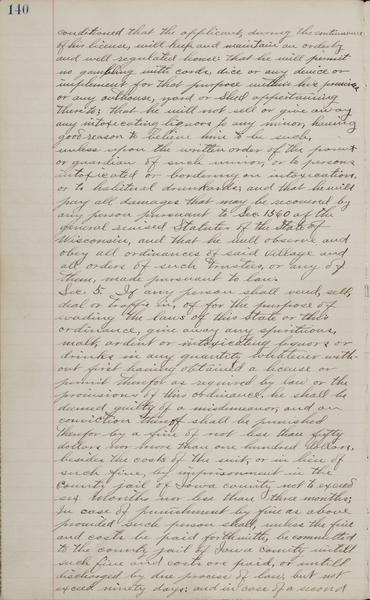 140
conditioned that the applicant, during the continuance
of his license, will keep and maintain an orderly
and well regulated house: that he will permit
no gambling with cards, dice or any device or
implement for that purpose within his premises
or any outhouse, yard or shed appertaining
thereto; that he will not sell or give away
any intoxicating liquors to any minor, having
good reason to believe him to be such,
unless upon the written order of the parent
or guardian of such minor, or to persons
intoxicated or bordering on intoxication
or to habitual drunkards; and that he will
pay all damages that may be recovered by
any person pursuant to Sec. 1560 of the
general revised Statutes of the State of
Wisconsin, and that he will observe and
obey all ordinances of said Village and
all orders of such trustees, or any of
them, made pursuant to law.
Sec. 5. If any person shall vend, sell,
deal or traffic in, of for the purpose of
evading the laws of this State or this
ordinance, give away any spirituous,
malt, ardent or intoxicating liquors or
drinks in any quantity whatever with-
out first having obtained a license or
permit therefor as required by law or the
provisions of this ordinance, he shall be
deemed guilty of a misdemeanor, and on
conviction thereof shall be punished
therefor by a fine of not less than fifty
dollars nor more than one hundred dollars,
besides the costs of the suit, or in lieu of
such fine, by imprisonment in the
County jail of Iowa County not to exceed
six months nor less than three months;
In case of punishment by fine as above
provided such person shall, unless the fine
and costs be paid forthwith, be committed
to the county jail of Iowa County untill
such fine and costs are paid, or untill
discharged by due process of law, but not
exceed ninety days: and in case of a second